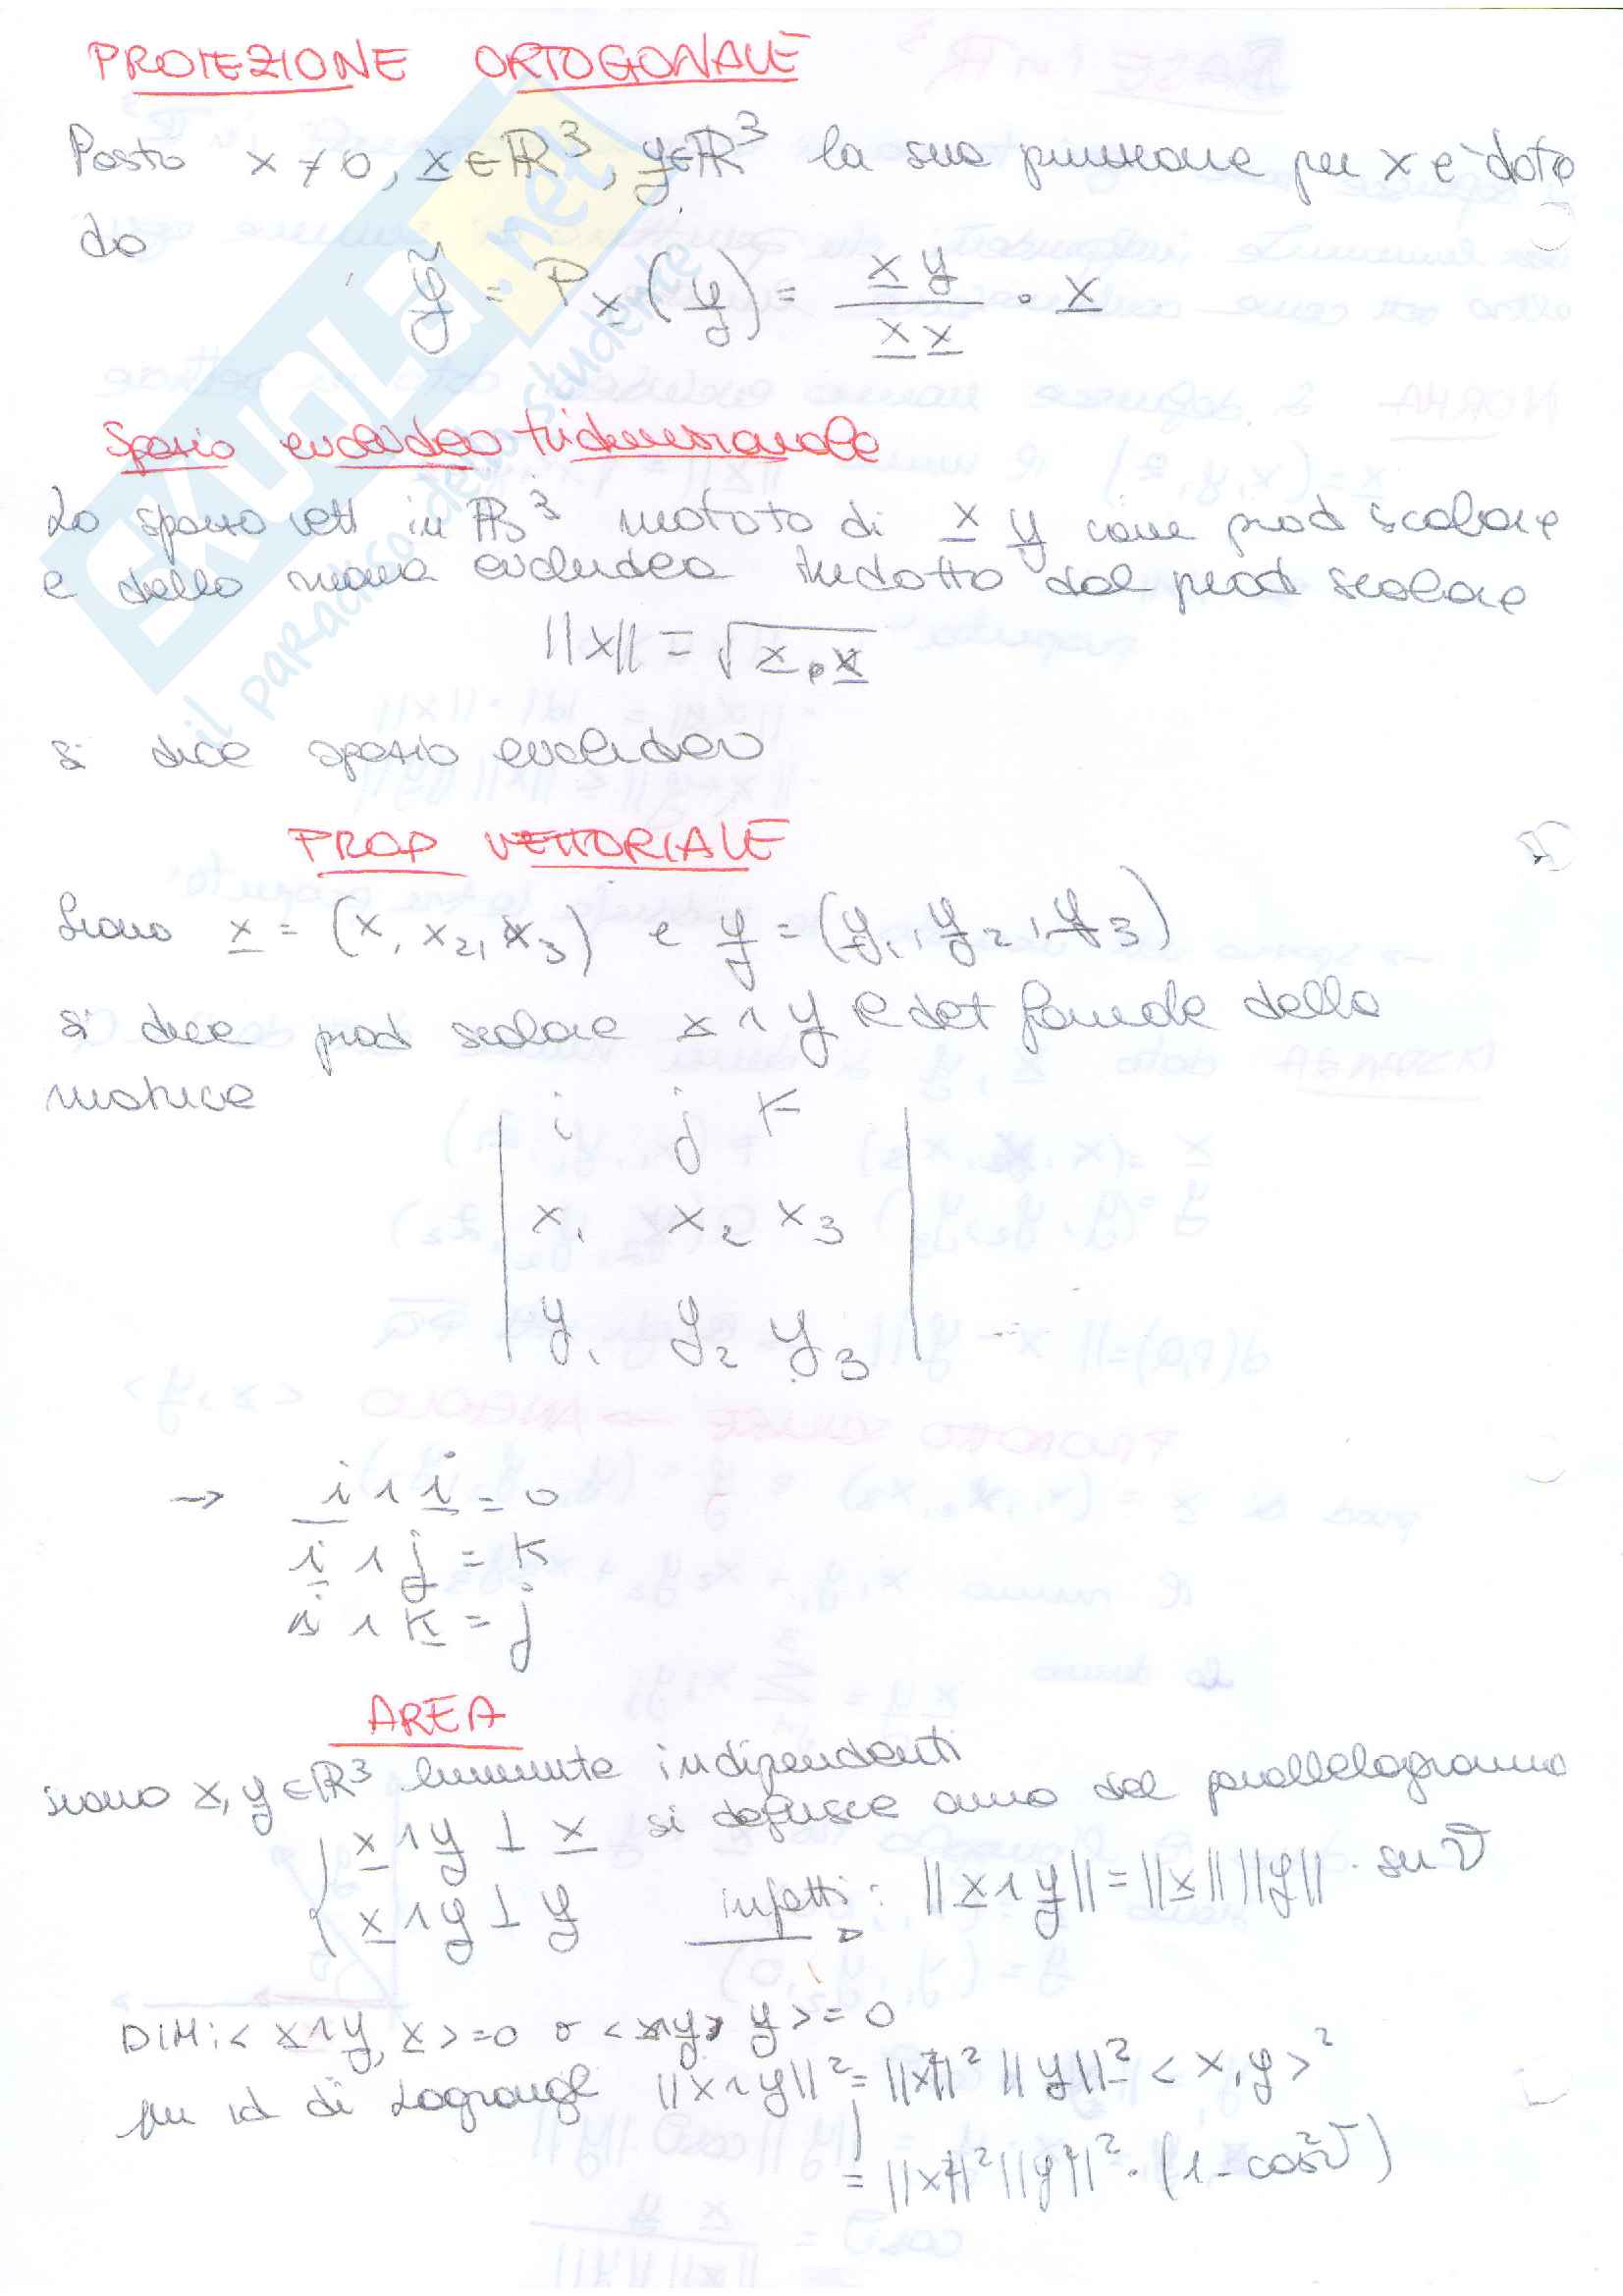 PROIEZIONE ORTOGONALE
Posto x ≠ 0, x ∈ ℝ³, y ∈ ℝ³ la sua proiezione per x è data
da
ỹ = P_x (y) = x y / x x · x
Spazio euclideo tridimensionale
Lo spazio vett in ℝ³ dotato di x y come prod scalare
e della norma euclidea indotto dal prod scalare
||x|| = √x·x
si dice spazio euclideo
PROD VETTORIALE
Siano x = (x₁ x₂, x₃) e y = (y₁, y₂, y₃)
si dice prod scalare x ∧ y il det formale della
matrice
i j k
x₁ x₂ x₃
y₁ y₂ y₃
→ i ∧ i = 0
i ∧ j = k
i ∧ k = j
AREA
siano x, y ∈ ℝ³ linearmente indipendenti
si definisce area del parallelogramma
x ∧ y ⊥ x
x ∧ y ⊥ y infatti: ||x ∧ y|| = ||x|| ||y|| · sin ϑ
DIM: < x ∧ y, x > = 0 o < x ∧ y, y > = 0
per id di Lagrange ||x ∧ y||² = ||x||² ||y||² - < x, y >²
= ||x||² ||y||² · (1 - cos²ϑ)
SKUOLa.net
il paradiso dello studente